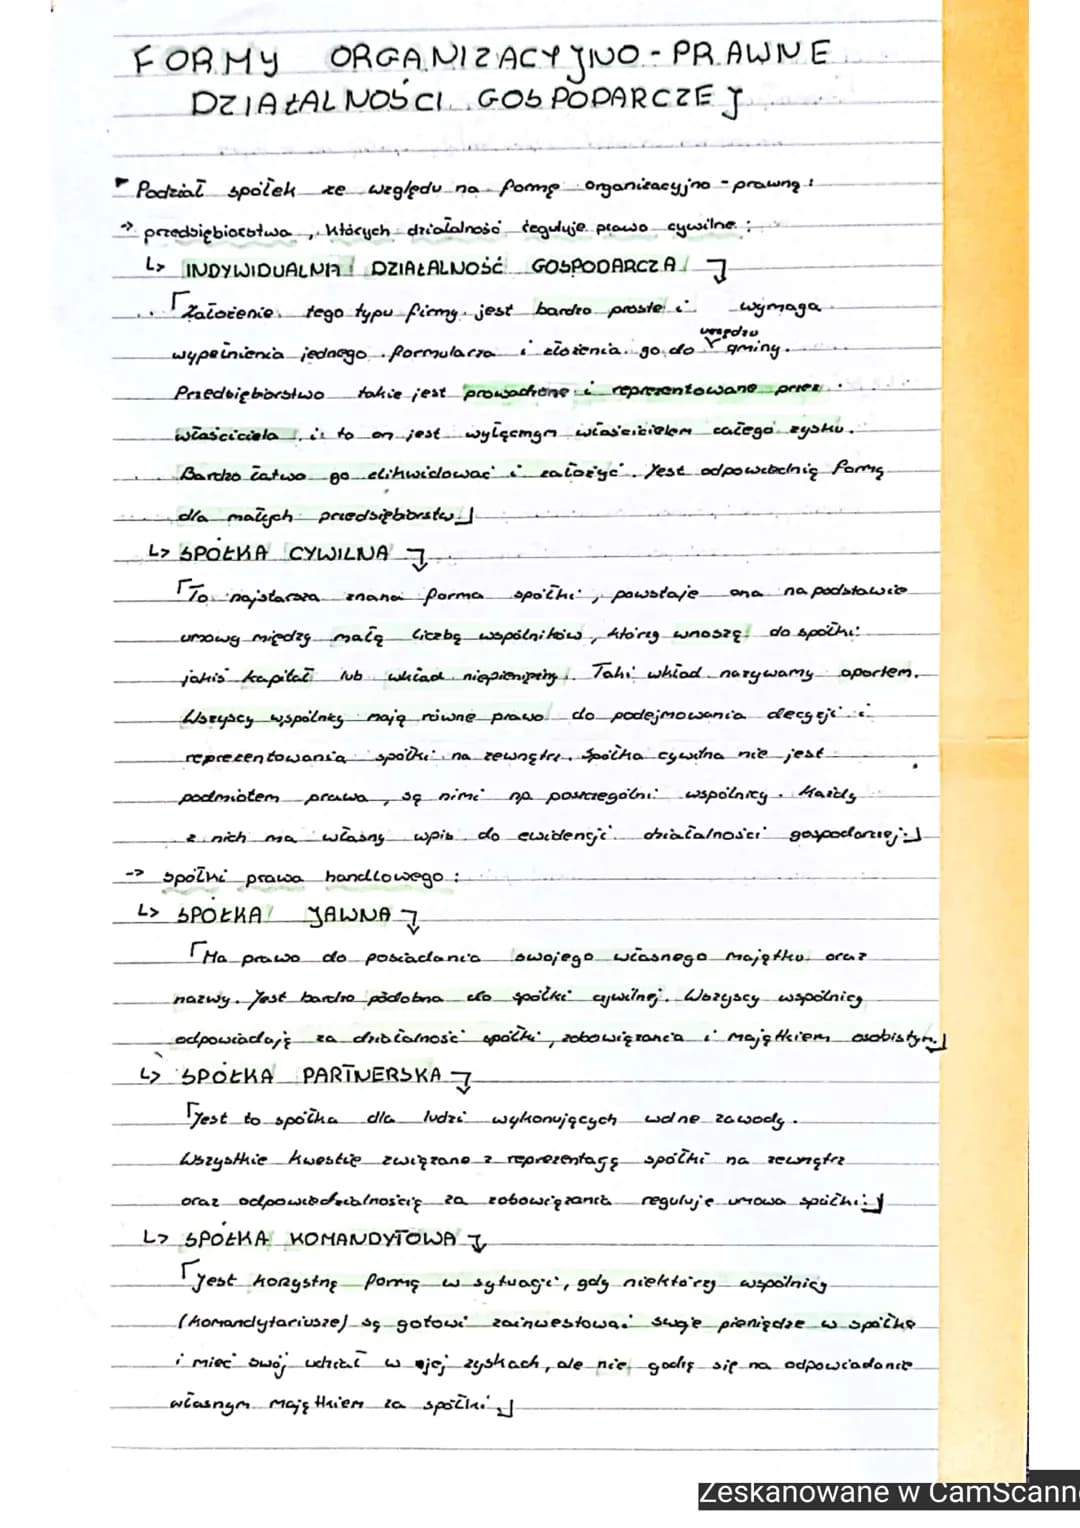 FORMY ORGANIZACYJNO-PRAWNE
DZIAŁALNOŚCI GOSPODARCZEJ
Podział spółek ze względu na formę organizacyjno-prawną:
→ przedsiębiorstwa, których działalność reguluje prawo cywilne:
↳ INDYWIDUALNA DZIAŁALNOŚĆ GOSPODARCZA
Założenie tego typu firmy jest bardzo proste i wymaga
urzędu
wypełnienia jednego formularza i złożenia go do gminy.
Przedsiębiorstwo takie jest prowadzone i reprezentowane przez
właściciela, iż to on jest wyłącznym właścicielem całego zysku.
Bardzo łatwo go zlikwidować i założyć. Jest odpowiednią formą
dla małych przedsiębiorstw
↳ SPÓŁKA CYWILNA
To najstarsza znana forma spółki, powstaje ona na podstawie
umowy między małą liczbą wspólników, którzy wnoszą do spółki
jakiś kapitał lub wkład niepieniężny. Taki wkład nazywamy aportem.
Wszyscy wspólnicy mają równe prawo do podejmowania decyzji i
reprezentowania spółki na zewnątrz. Spółka cywilna nie jest
podmiotem prawa, są nimi np poszczególni wspólnicy. Każdy
z nich ma własny wpis do ewidencji działalności gospodarczej.
→ spółki prawa handlowego:
↳ SPÓŁKA JAWNA
Ma prawo do posiadania swojego własnego majątku oraz
nazwy. Jest bardzo podobna do spółki cywilnej. Wszyscy wspólnicy
odpowiadają za działalność spółki, zobowiązania i majątkiem osobistym.
↳ SPÓŁKA PARTNERSKA
Jest to spółka dla ludzi wykonujących wolne zawody.
Wszystkie kwestie związane z reprezentacją spółki na zewnątrz
oraz odpowiedzialnością za zobowiązania reguluje umowa spółki.
↳ SPÓŁKA KOMANDYTOWA
Jest korzystną formą w sytuacji, gdy niektórzy wspólnicy
(komandytariusze) są gotowi zainwestować swoje pieniądze w spółkę
i mieć swój udział w jej zyskach, ale nie godzą się na odpowiadanie
własnym majątkiem za spółki
Zeskanowane w CamScann